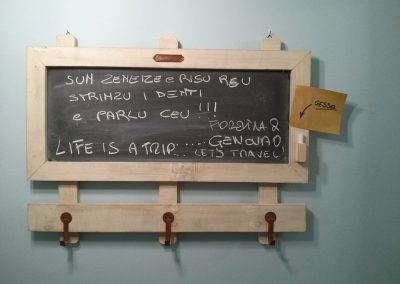 SUN ZENEIZE E RISU REU
STRINZU I DENTI
E PARLU CEU !!!
2
GENOVA 0
LIFE IS A TRIP.... LETS TRAVEL!
GESSO